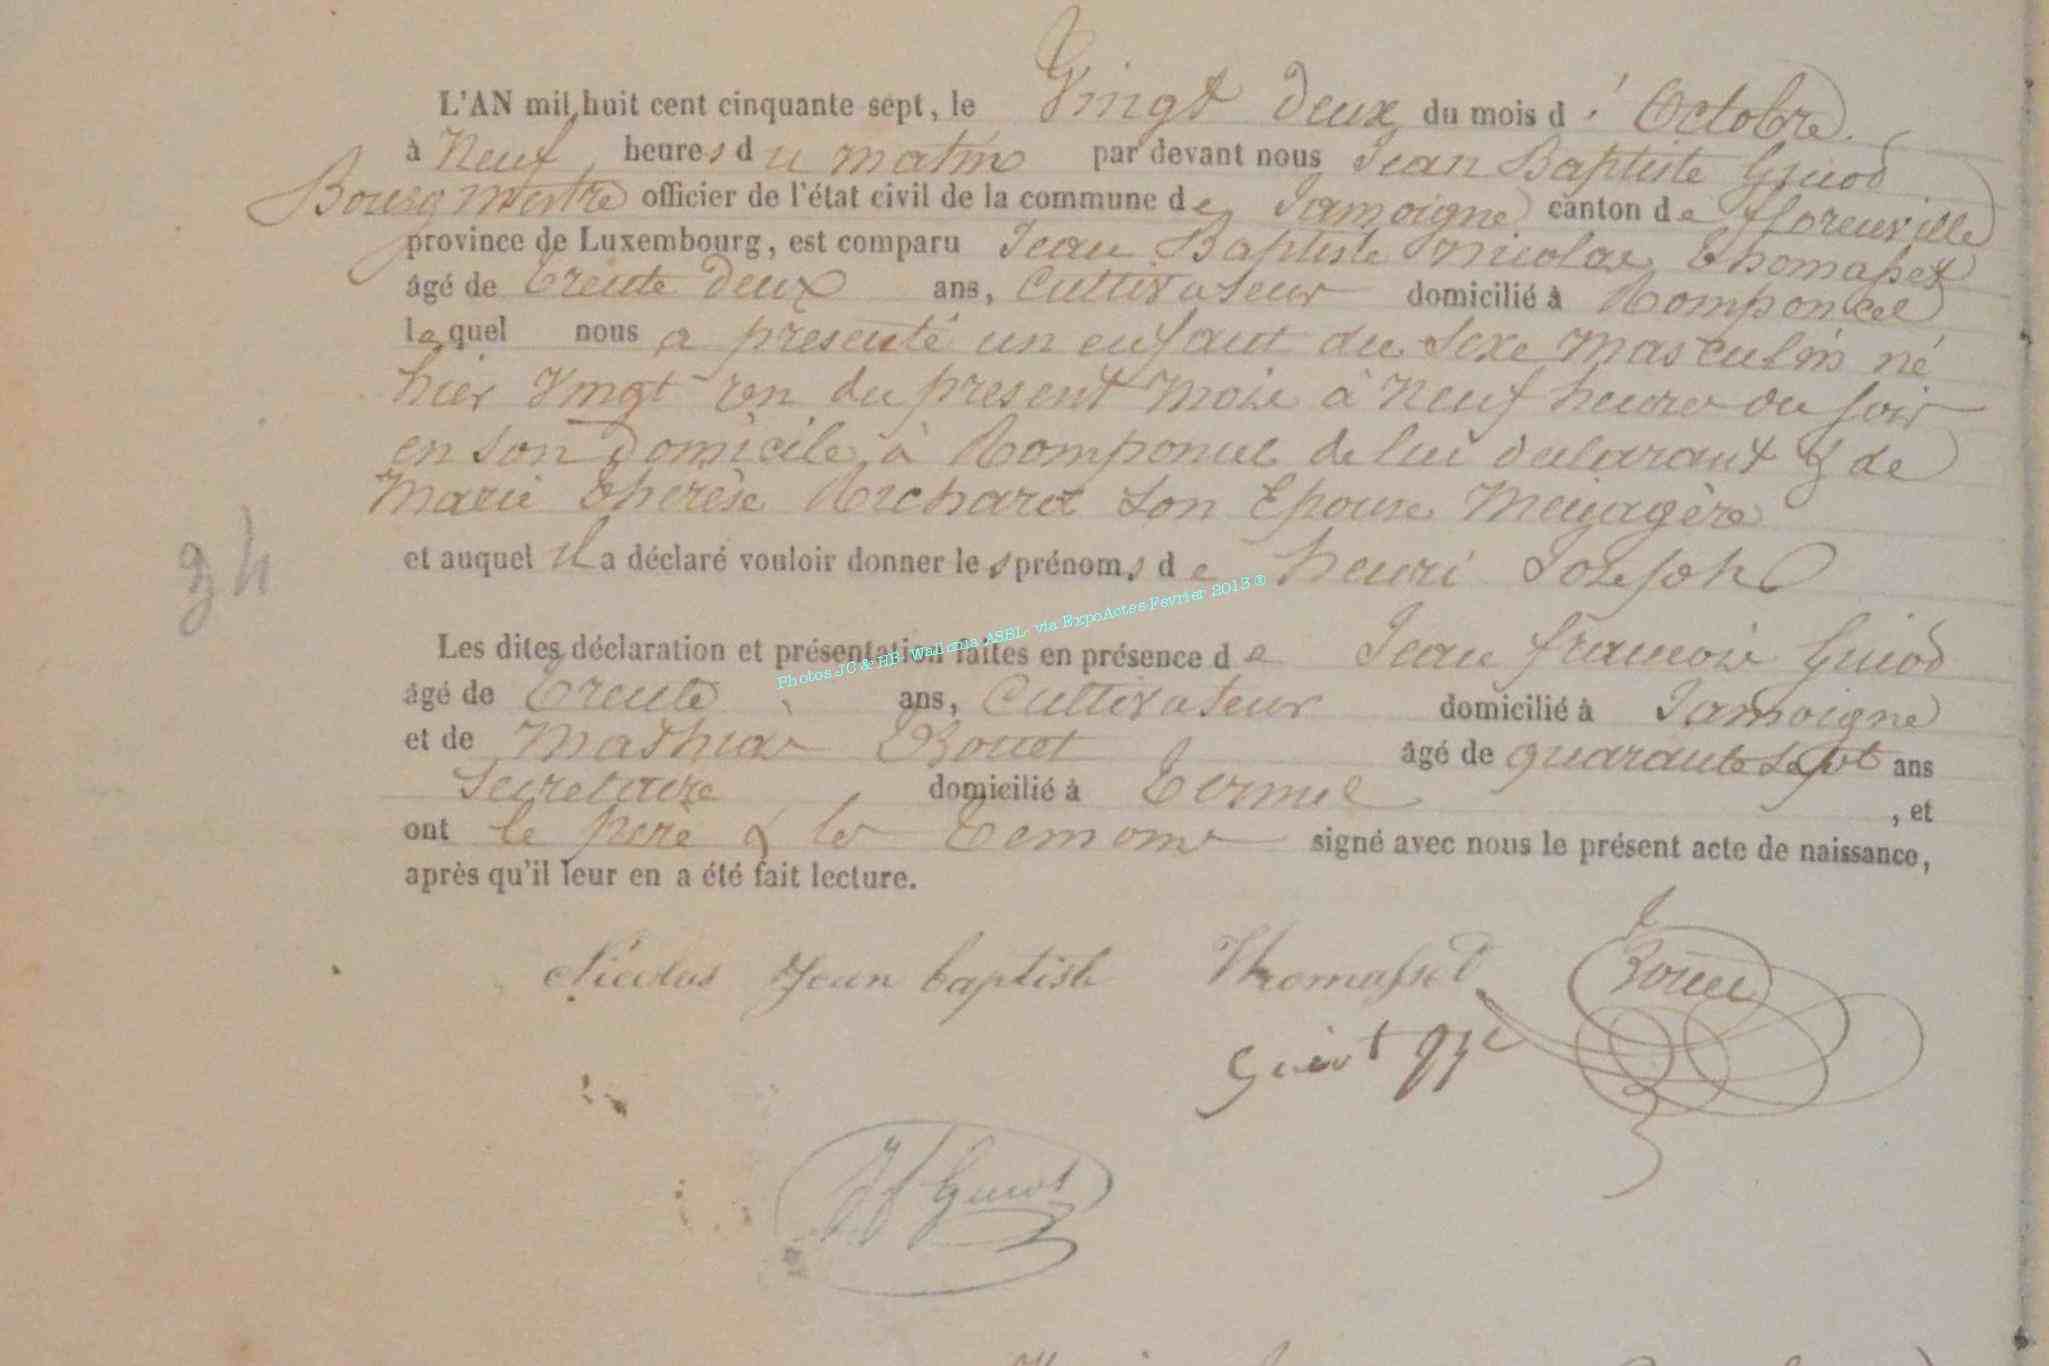 L'AN mil huit cent cinquante sept, le Vingt deux du mois d'Octobre
à Neuf heures du matin par devant nous Jean Baptiste Guiod
Bourgmestre officier de l'état civil de la commune de Jamoigne canton de fflorenville
province de Luxembourg, est comparu Jean Baptiste Nicolas Thomasset
âgé de trente deux ans, Cultivateur domicilié à Romponcel
lequel nous a présenté un enfant du sexe masculin né
hier Vingt un du present mois à Neuf heures du soir
en son domicile à Romponcel de lui declarant & de
Marie Thérèse Richard son Epouse Menagère
et auquel il a déclaré vouloir donner les prénoms de henri Joseph
34
Les dites déclaration et présentation faites en présence de Jean francois Guiod
âgé de trente ans, Cultivateur domicilié à Jamoigne
et de Mathias Bouet âgé de quarante sept ans
Secretaire domicilié à Termes , et
ont le père & les temoins signé avec nous le présent acte de naissance,
après qu'il leur en a été fait lecture.
Photos JC & HB Wallonia ASBL via ExpoActes Fevrier 2013 ®
Nicolas Jean baptiste Thomasset
Guiot
JF Guiot